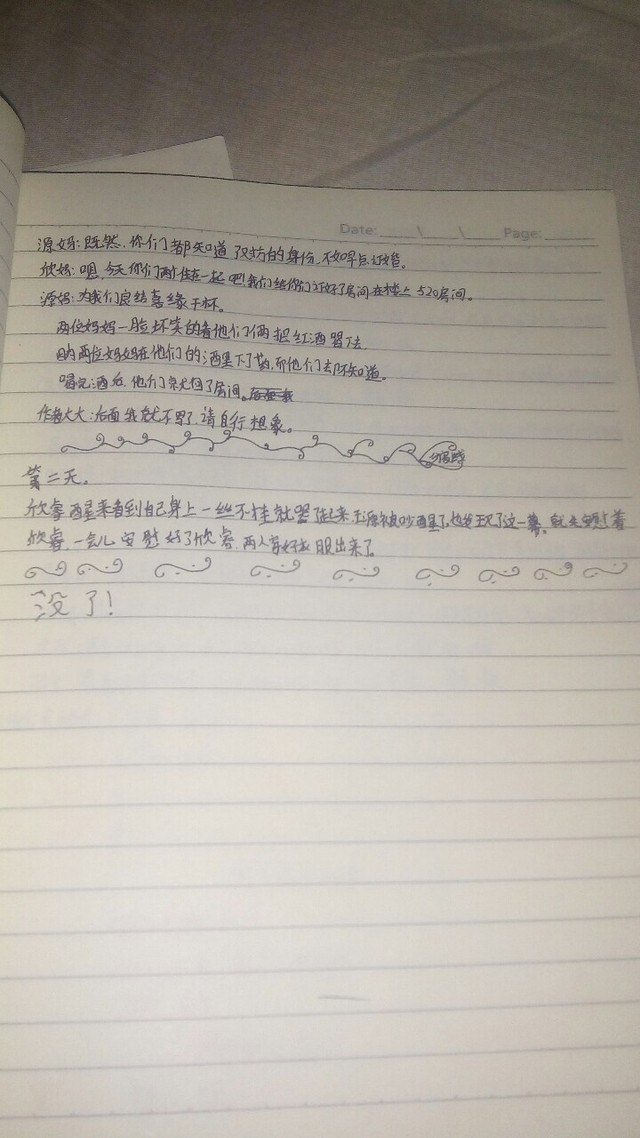 Date: Page:
源妈:既然,你们都知道了双方的身份,不如早点订婚。
欣妈:嗯,今天你们两住在一起吧!我们给你们订好了房间在楼上520房间。
源妈:为我们良结喜缘干杯。
两位妈妈一脸坏笑的看他们俩把红酒喝下去
因为两位妈妈在他们的酒里下了药,而他们去不知道。
喝完酒后,他们就回了房间。
作者大大:后面我就不写了,请自行想象。
分隔
第二天。
欣睿醒来看到自己身上一丝不挂就哭了起来,王源被吵醒了,也发现了这一幕,就去安慰着
欣睿,一会儿安慰好了欣睿,两人穿好衣服出来了
没了!